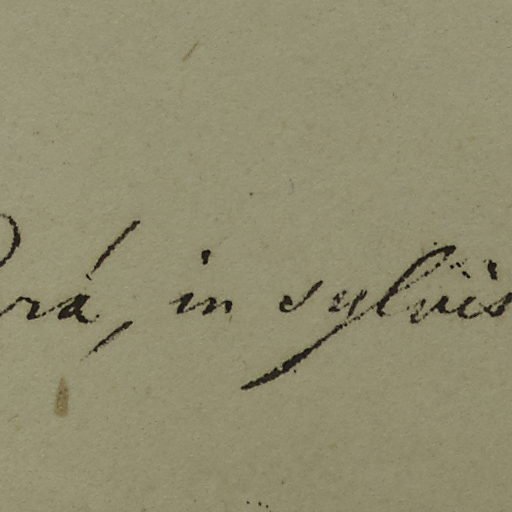 Pará, in sylvis